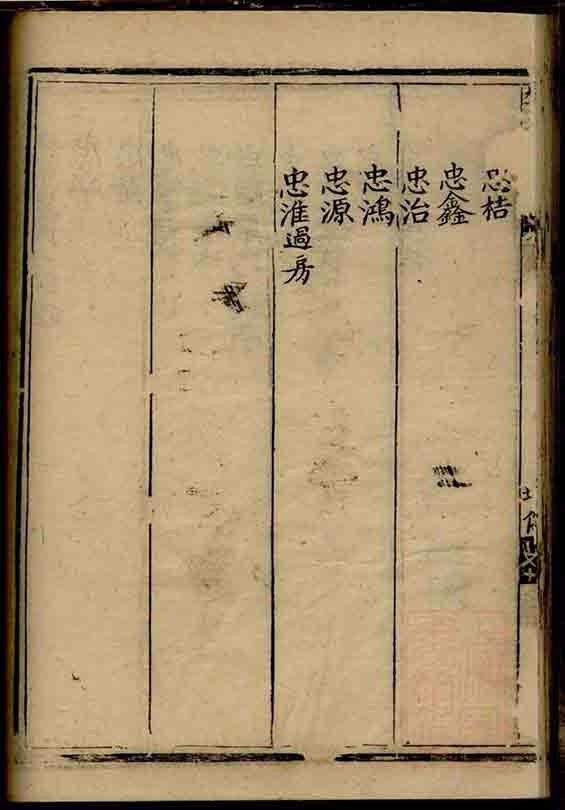 忠桔
忠鑫
忠治
忠鴻
忠源
忠淮過房